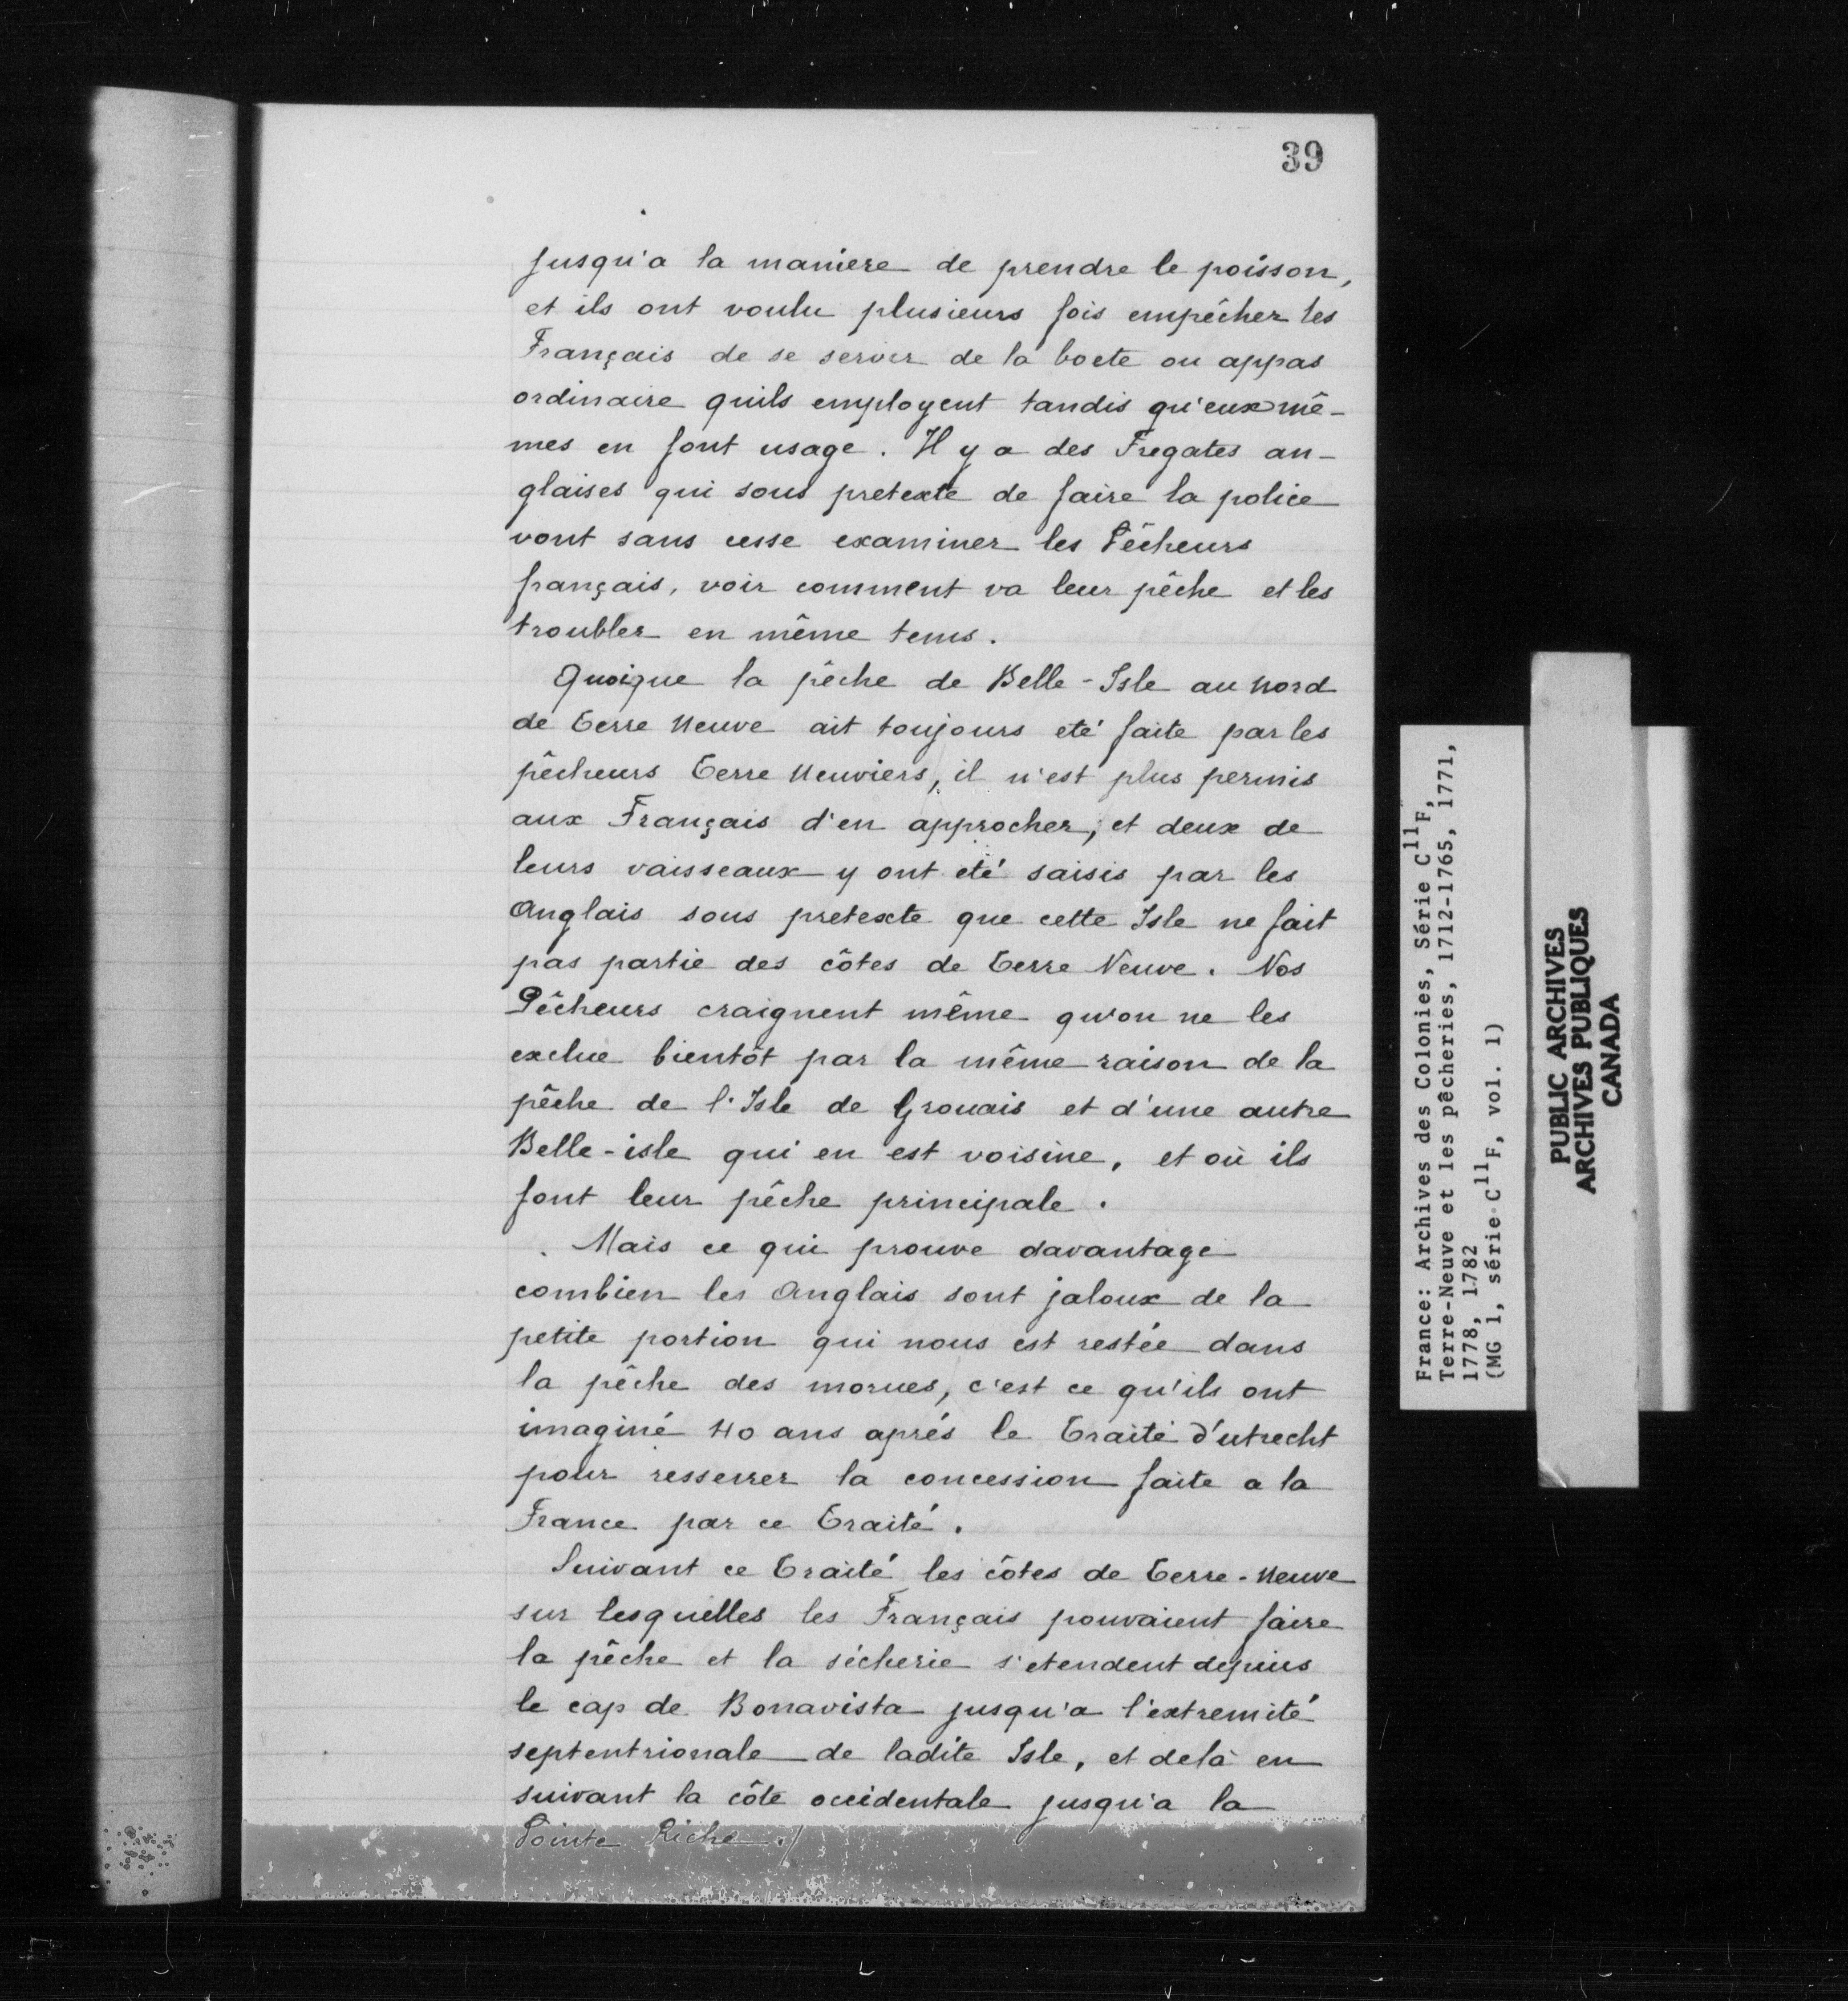 39
jusqu'a la maniere de prendre le poisson,
et ils ont voulu plusieurs fois empêcher les
Français de se servir de la boete ou appas
ordinaire quils employent tandis qu'eux mê-
mes en font usage. Il y a des Fregates an-
glaises qui sous pretexte de faire la police
vont sans cesse examiner les Pêcheurs
français, voir comment va leur pêche et les
troubler en même tems.
Quoique la pêche de Belle-Isle au nord
de Terre Neuve ait toujours eté faite par les
pêcheurs Terre Neuviers, il n'est plus permis
aux Français d'en approcher, et deux de
leurs vaisseaux y ont eté saisis par les
Anglais sous pretexte que cette Isle ne fait
pas partie des côtes de Terre Neuve. Nos
Pêcheurs craignent même qu'on ne les
exclue bientôt par la même raison de la
pêche de l'Isle de Grouais et d'une autre
Belle-isle qui en est voisine, et où ils
font leur pêche principale.
Mais ce qui prouve davantage
combien les Anglais sont jaloux de la
petite portion qui nous est restée dans
la pêche des morues, c'est ce qu'ils ont
imaginé 40 ans aprés le Traité d'utrecht
pour resserrer la concession faite a la
France par ce Traité.
Suivant ce Traité les côtes de Terre-Neuve
sur lesquelles les Français pouvaient faire
la pêche et la sécherie s'etendent depuis
le cap de Bonavista jusqu'a l'extremité
septentrionale de ladite Isle, et delà en
suivant la côte occidentale jusqu'a la
Pointe Riche./
France: Archives des Colonies, Série C11F,
Terre-Neuve et les pêcheries, 1712-1765, 1771,
1778, 1782
(MG 1, série C11F, vol. 1)
PUBLIC ARCHIVES
ARCHIVES PUBLIQUES
CANADA